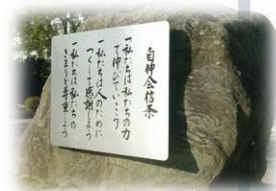 自伸会信条
一私たちは私たちの力
で伸びていこう
一私たちは人のために
つくして感謝しよう
一私たちは私たちの
きまりを尊重しよう